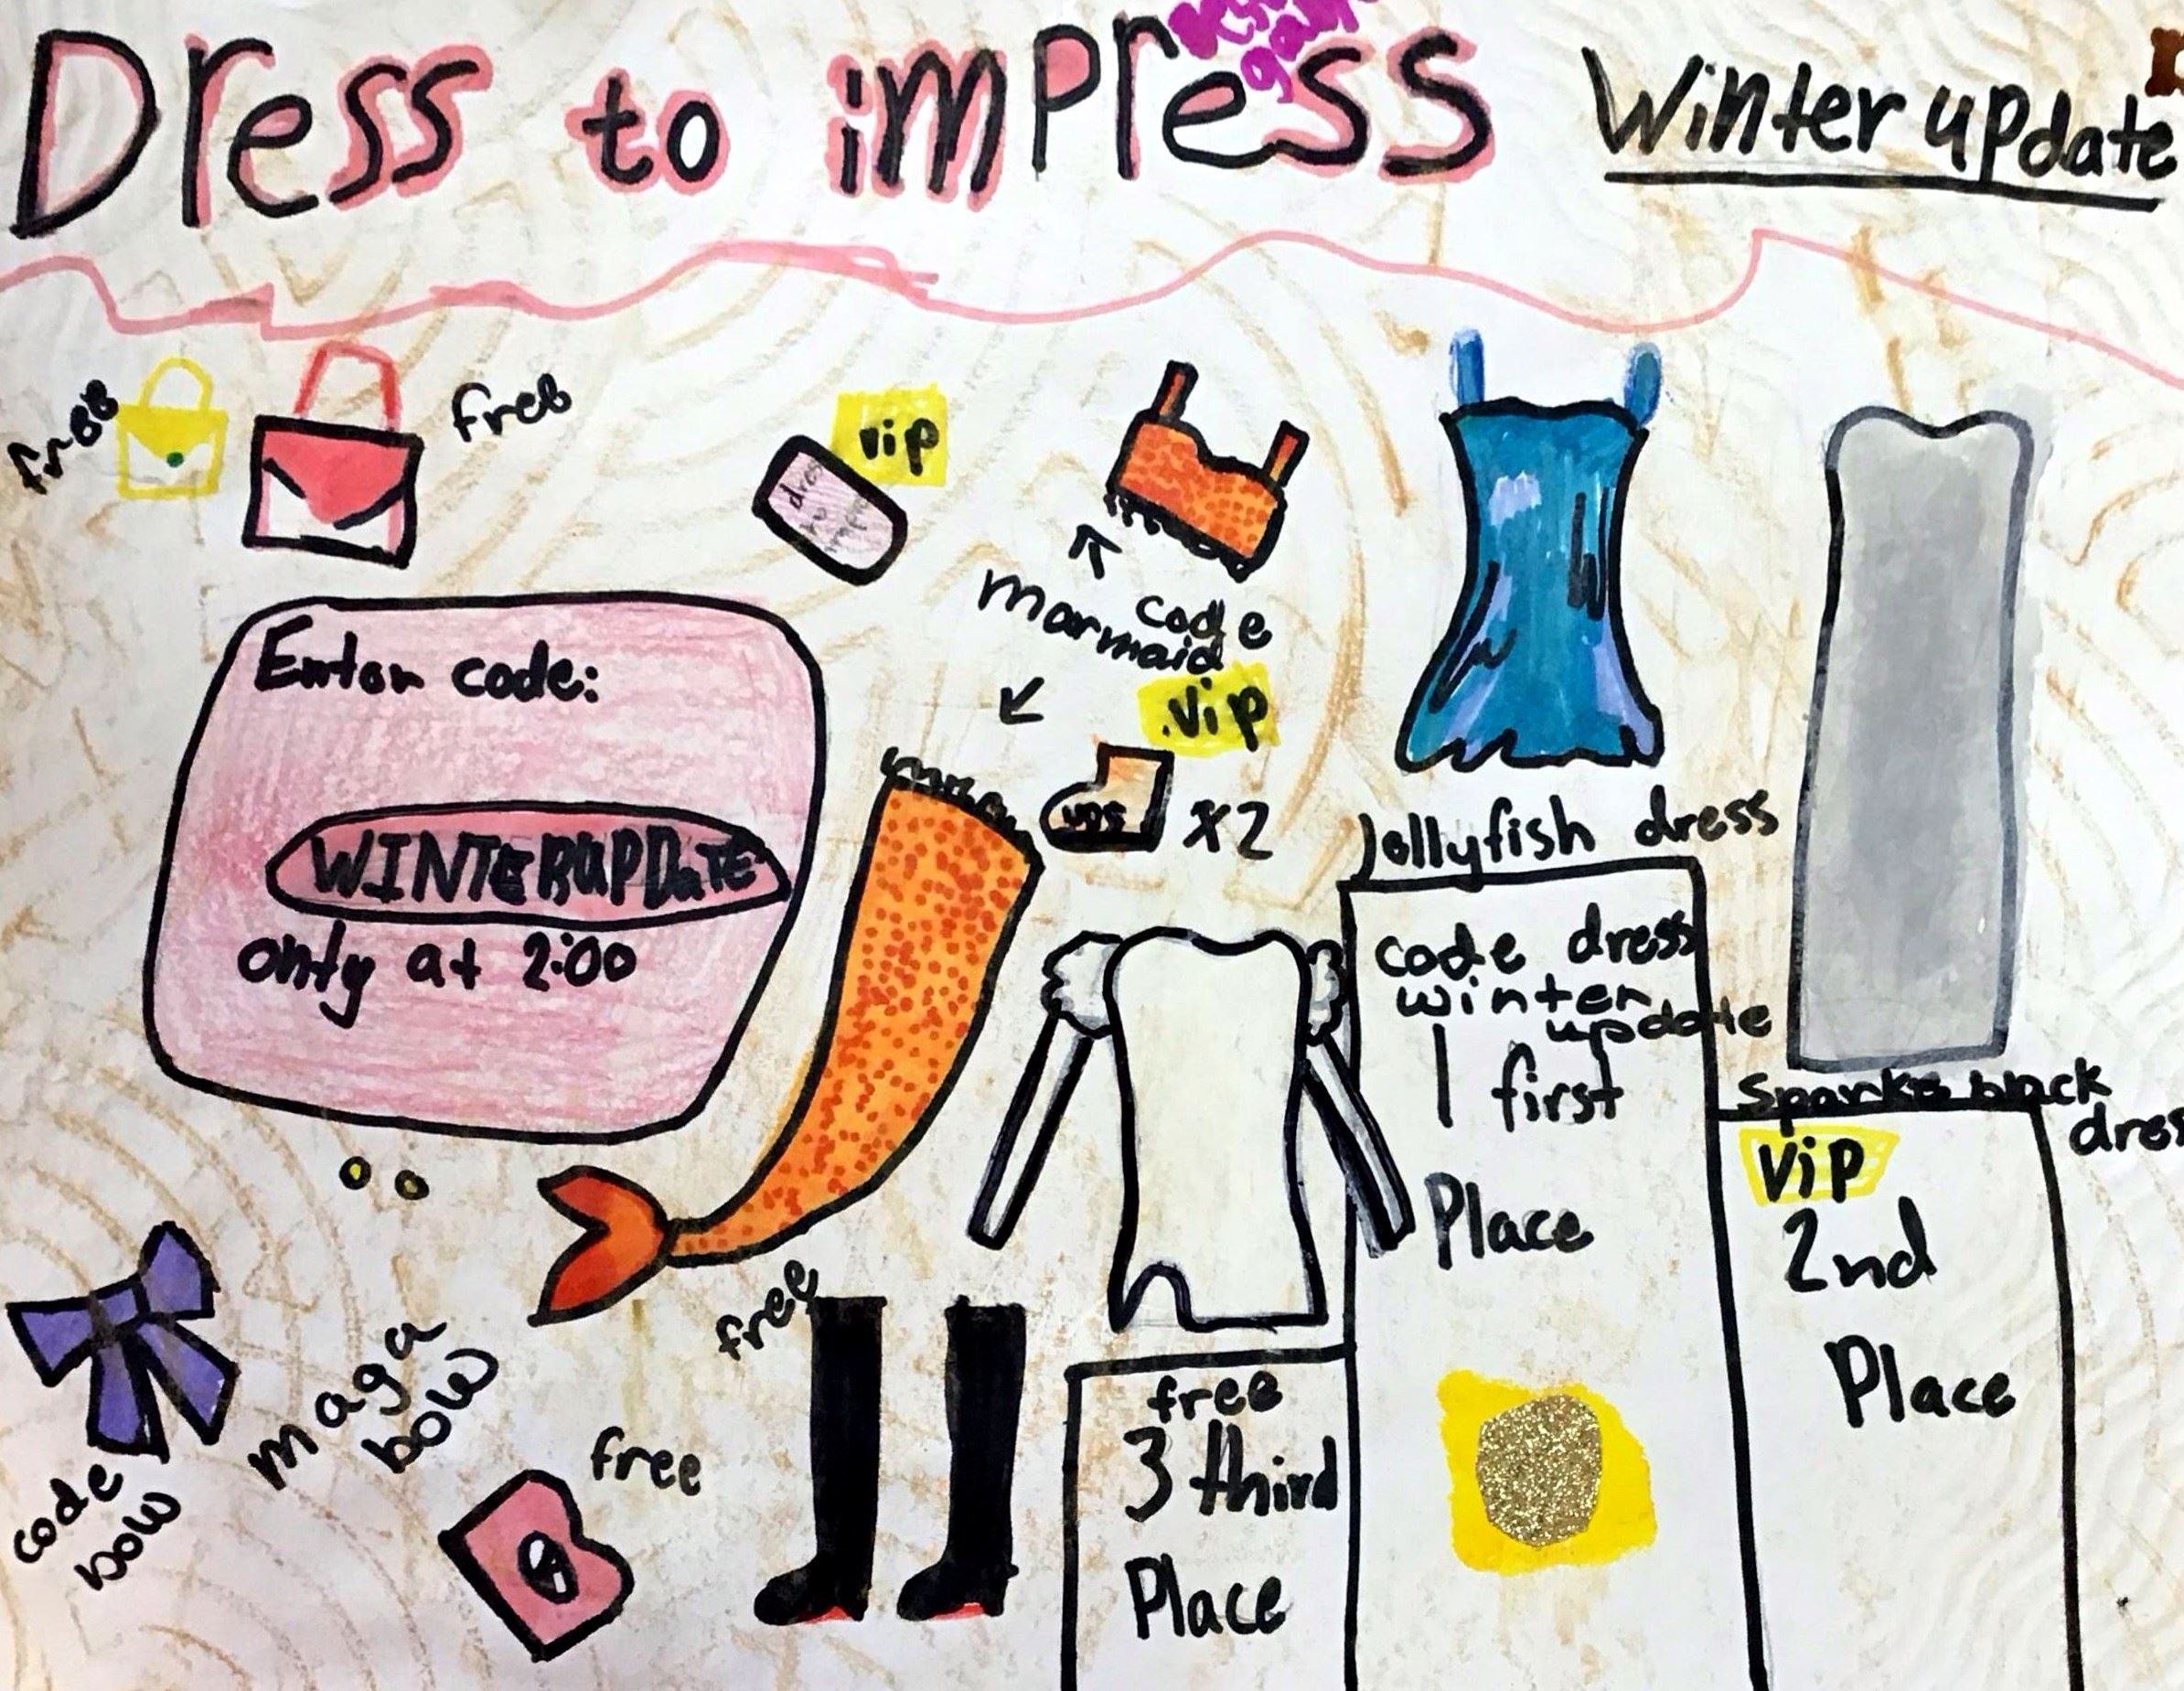 Dress to impress
Winter update
free
free
vip
dress
to
impress
code
marmaid
vip
ugs
x2
Enter code:
WINTERUPDaTE
only at 2:00
Jellyfish dress
code dress
winter
update
1 first
Place
Sparks black
dres
vip
2nd
Place
free
free
3 third
Place
maga
bow
code
bow
free